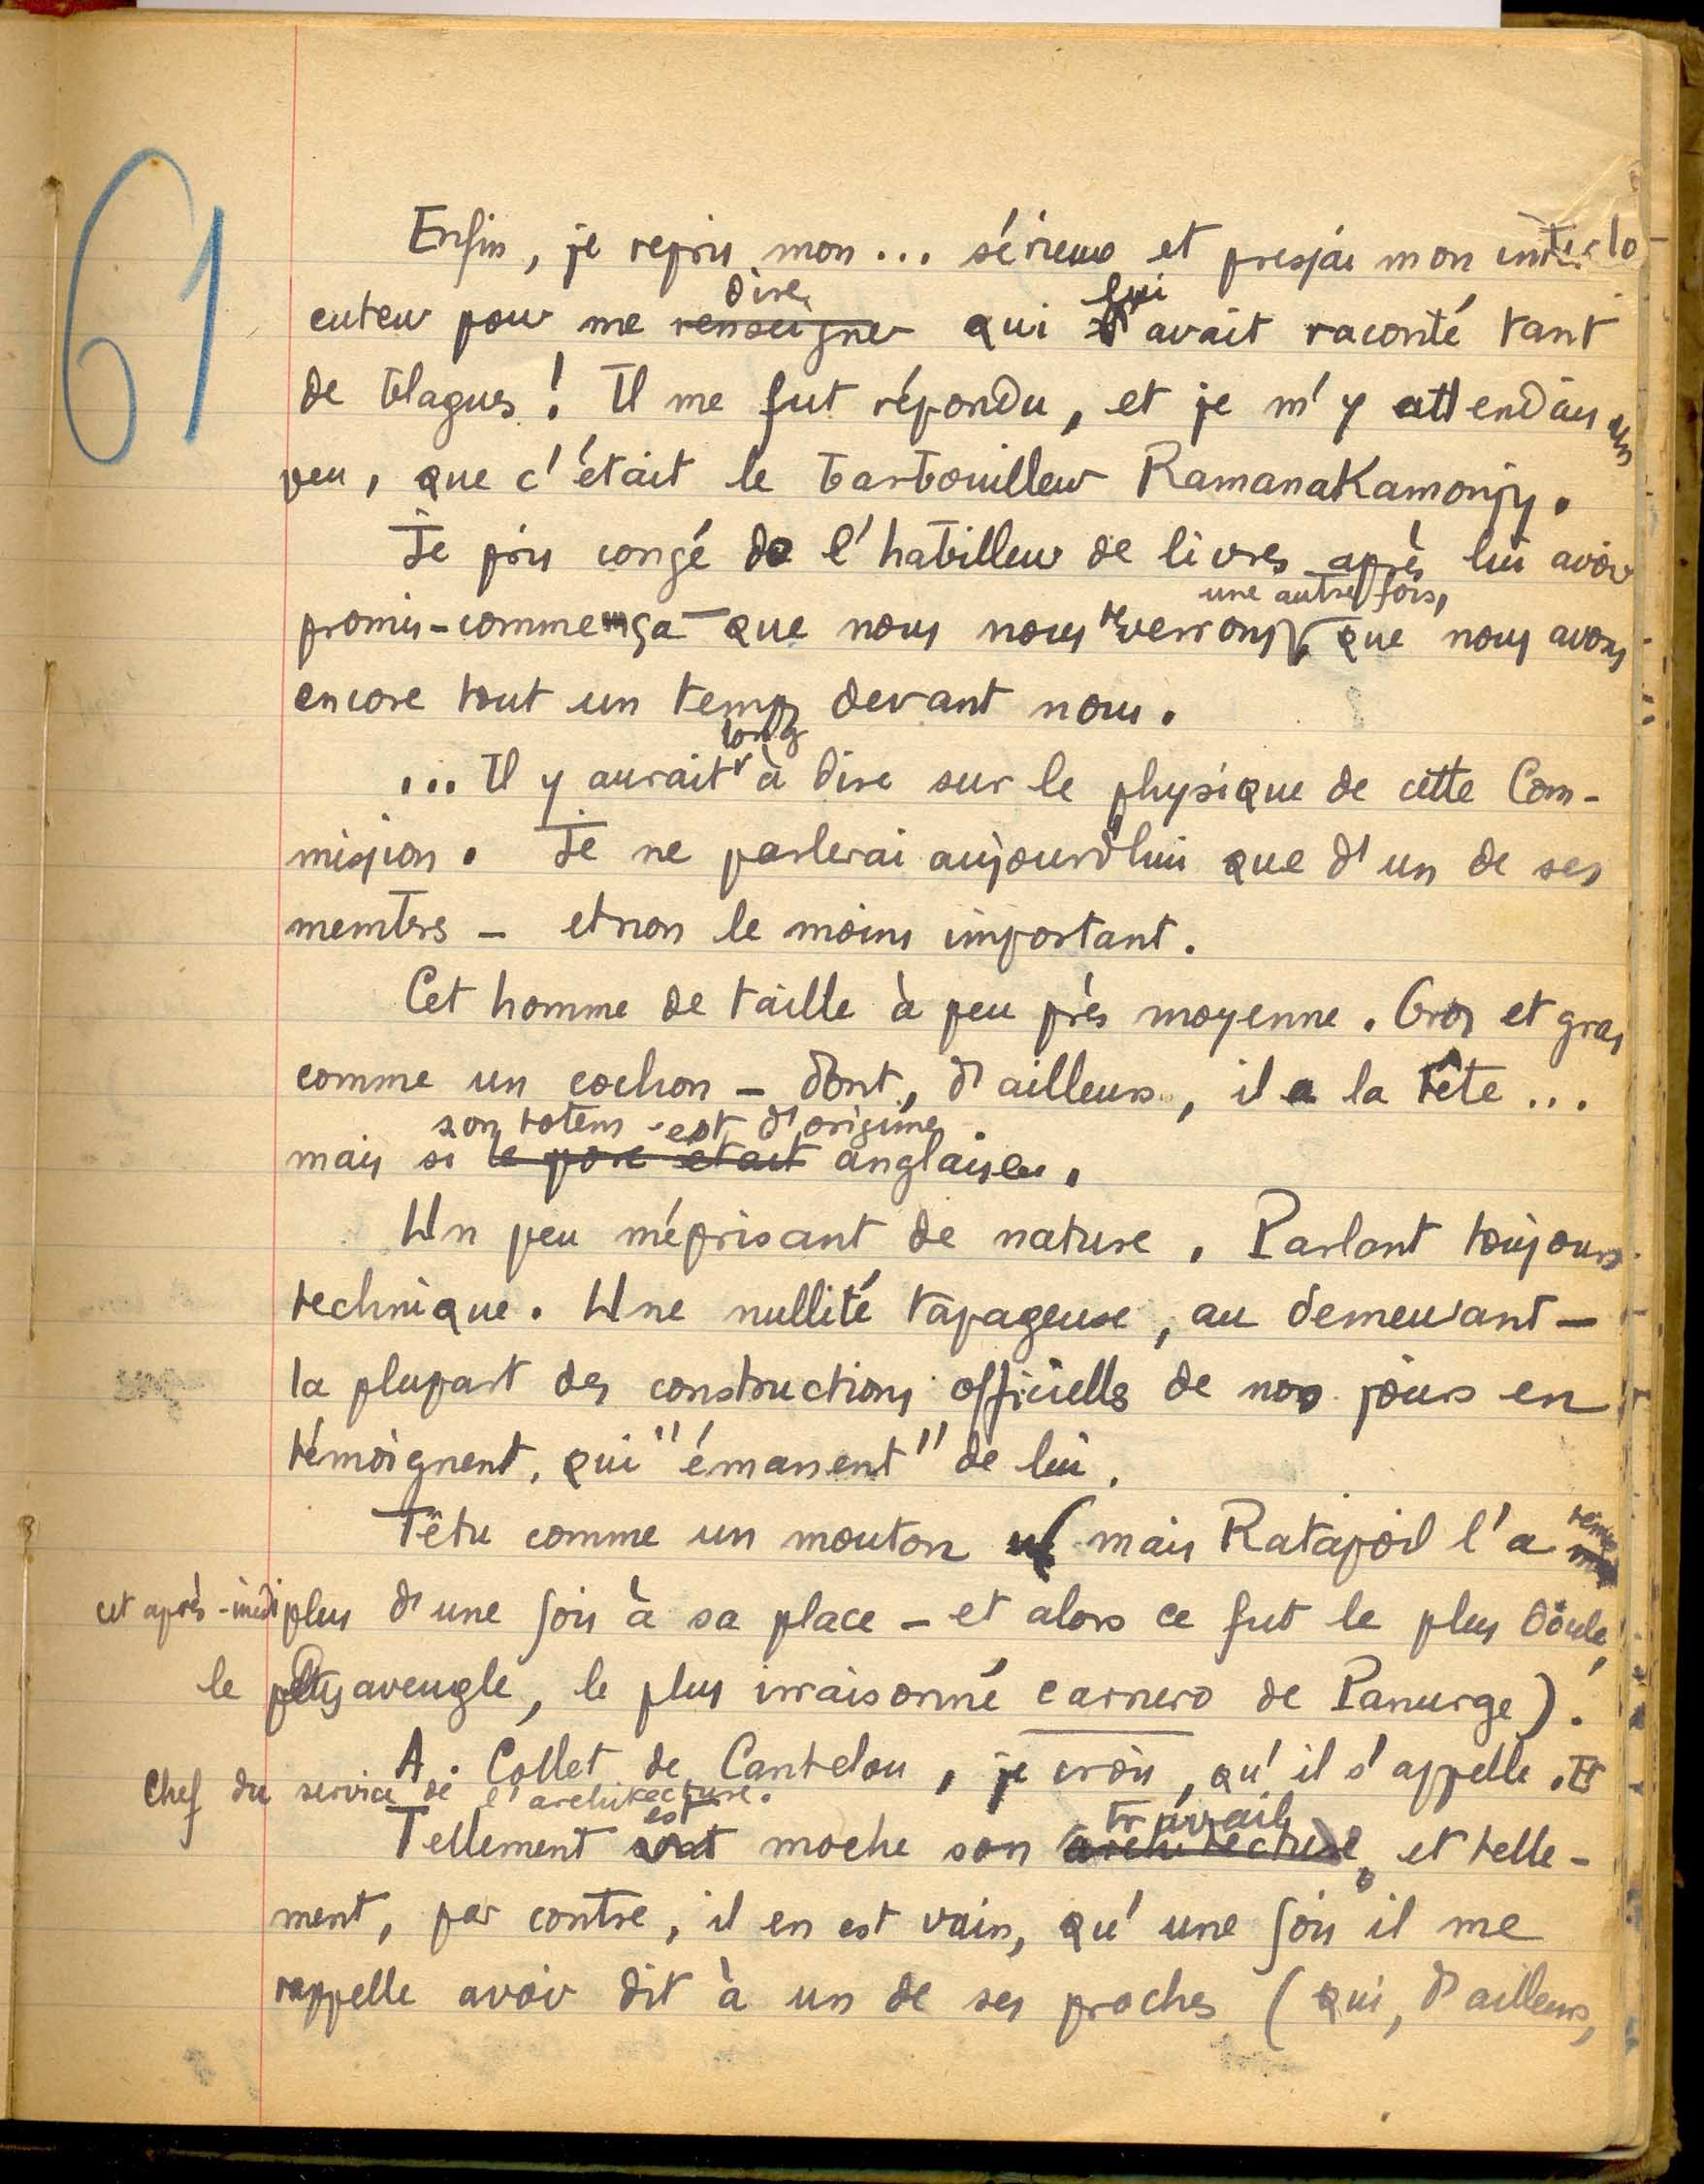 61
Enfin, je repris mon... sérieux et pressai mon interlo-
dire lui
cuteur pour me renseigner qui avait raconté tant
de blagues! Il me fut répondu, et je m'y attendais un
peu, que c'était le barbouilleur Ramanakamonjy.
Je pris congé de l'habilleur de livres après lui avoir
une autre fois,
promis - comme ça - que nous nous reverrons, que nous avons
encore tout un temps devant nous.
long
... Il y aurait à dire sur le physique de cette Com-
mission. Je ne parlerai aujourd'hui que d'un de ses
membres - et non le moins important.
Cet homme de taille à peu près moyenne. Gros et gras
comme un cochon - dont, d'ailleurs, il a la tête...
son totem est d'origine
mais si le porc était anglaise.
Un peu méprisant de nature. Parlant toujours
technique. Une nullité tapageuse, au demeurant -
la plupart des constructions officielles de nos jours en
témoignent, qui "émanent" de lui.
Têtu comme un mouton (mais Ratapoil l'a
cet après-midi plus d'une fois à sa place - et alors ce fut le plus
le plus aveugle, le plus irraisonné carnero de Panurge).
A. Collet de Cantelou, je crois, qu'il s'appelle. Et
Chef du service de l'architecture.
est travail
Tellement sont moche son architecture, et telle-
ment, par contre, il en est vain, qu'une fois il me
rappelle avoir dit à un de ses proches (qui, d'ailleurs,